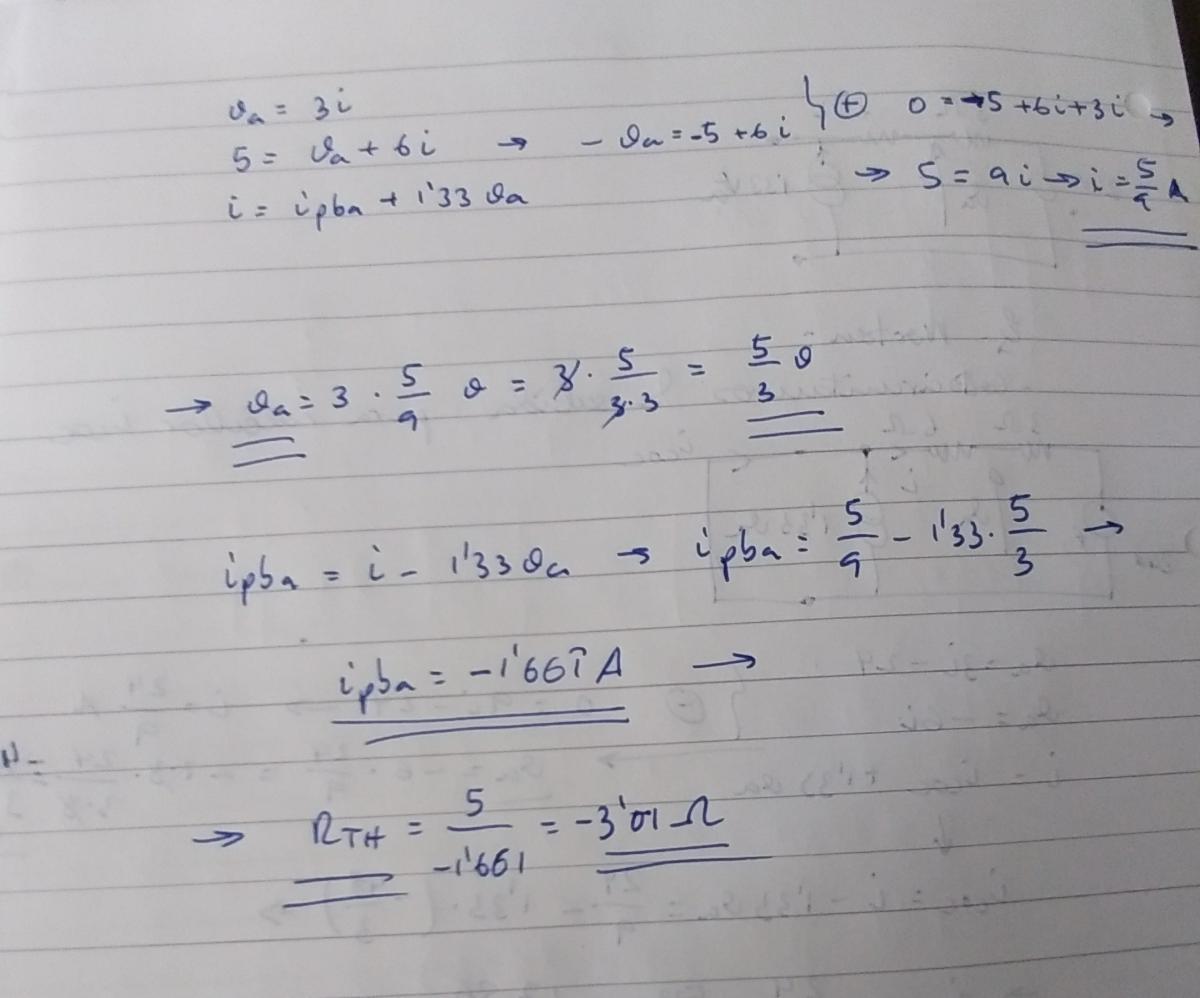 ϑa = 3i
5 = ϑa + 6i → - ϑa = -5 + 6i } ⊕ 0 = -5 + 6i + 3i →
i = ipba + 1'33 ϑa → 5 = 9i → i = 5/9 A
→ ϑa = 3 · 5/9 ϑ = 3 · 5/3·3 = 5/3 ϑ
ipba = i - 1'33 ϑa → ipba = 5/9 - 1'33 · 5/3 →
ipba = -1'661 A →
→ RTH = 5/-1'661 = -3'01 Ω